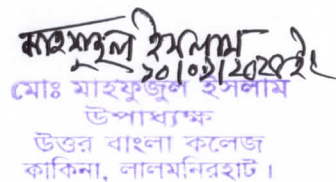 মাহফুজুল ইসলাম
মোঃ মাহফুজুল ইসলাম
উপাধ্যক্ষ
উত্তর বাংলা কলেজ
কাকিনা, লালমনিরহাট ।